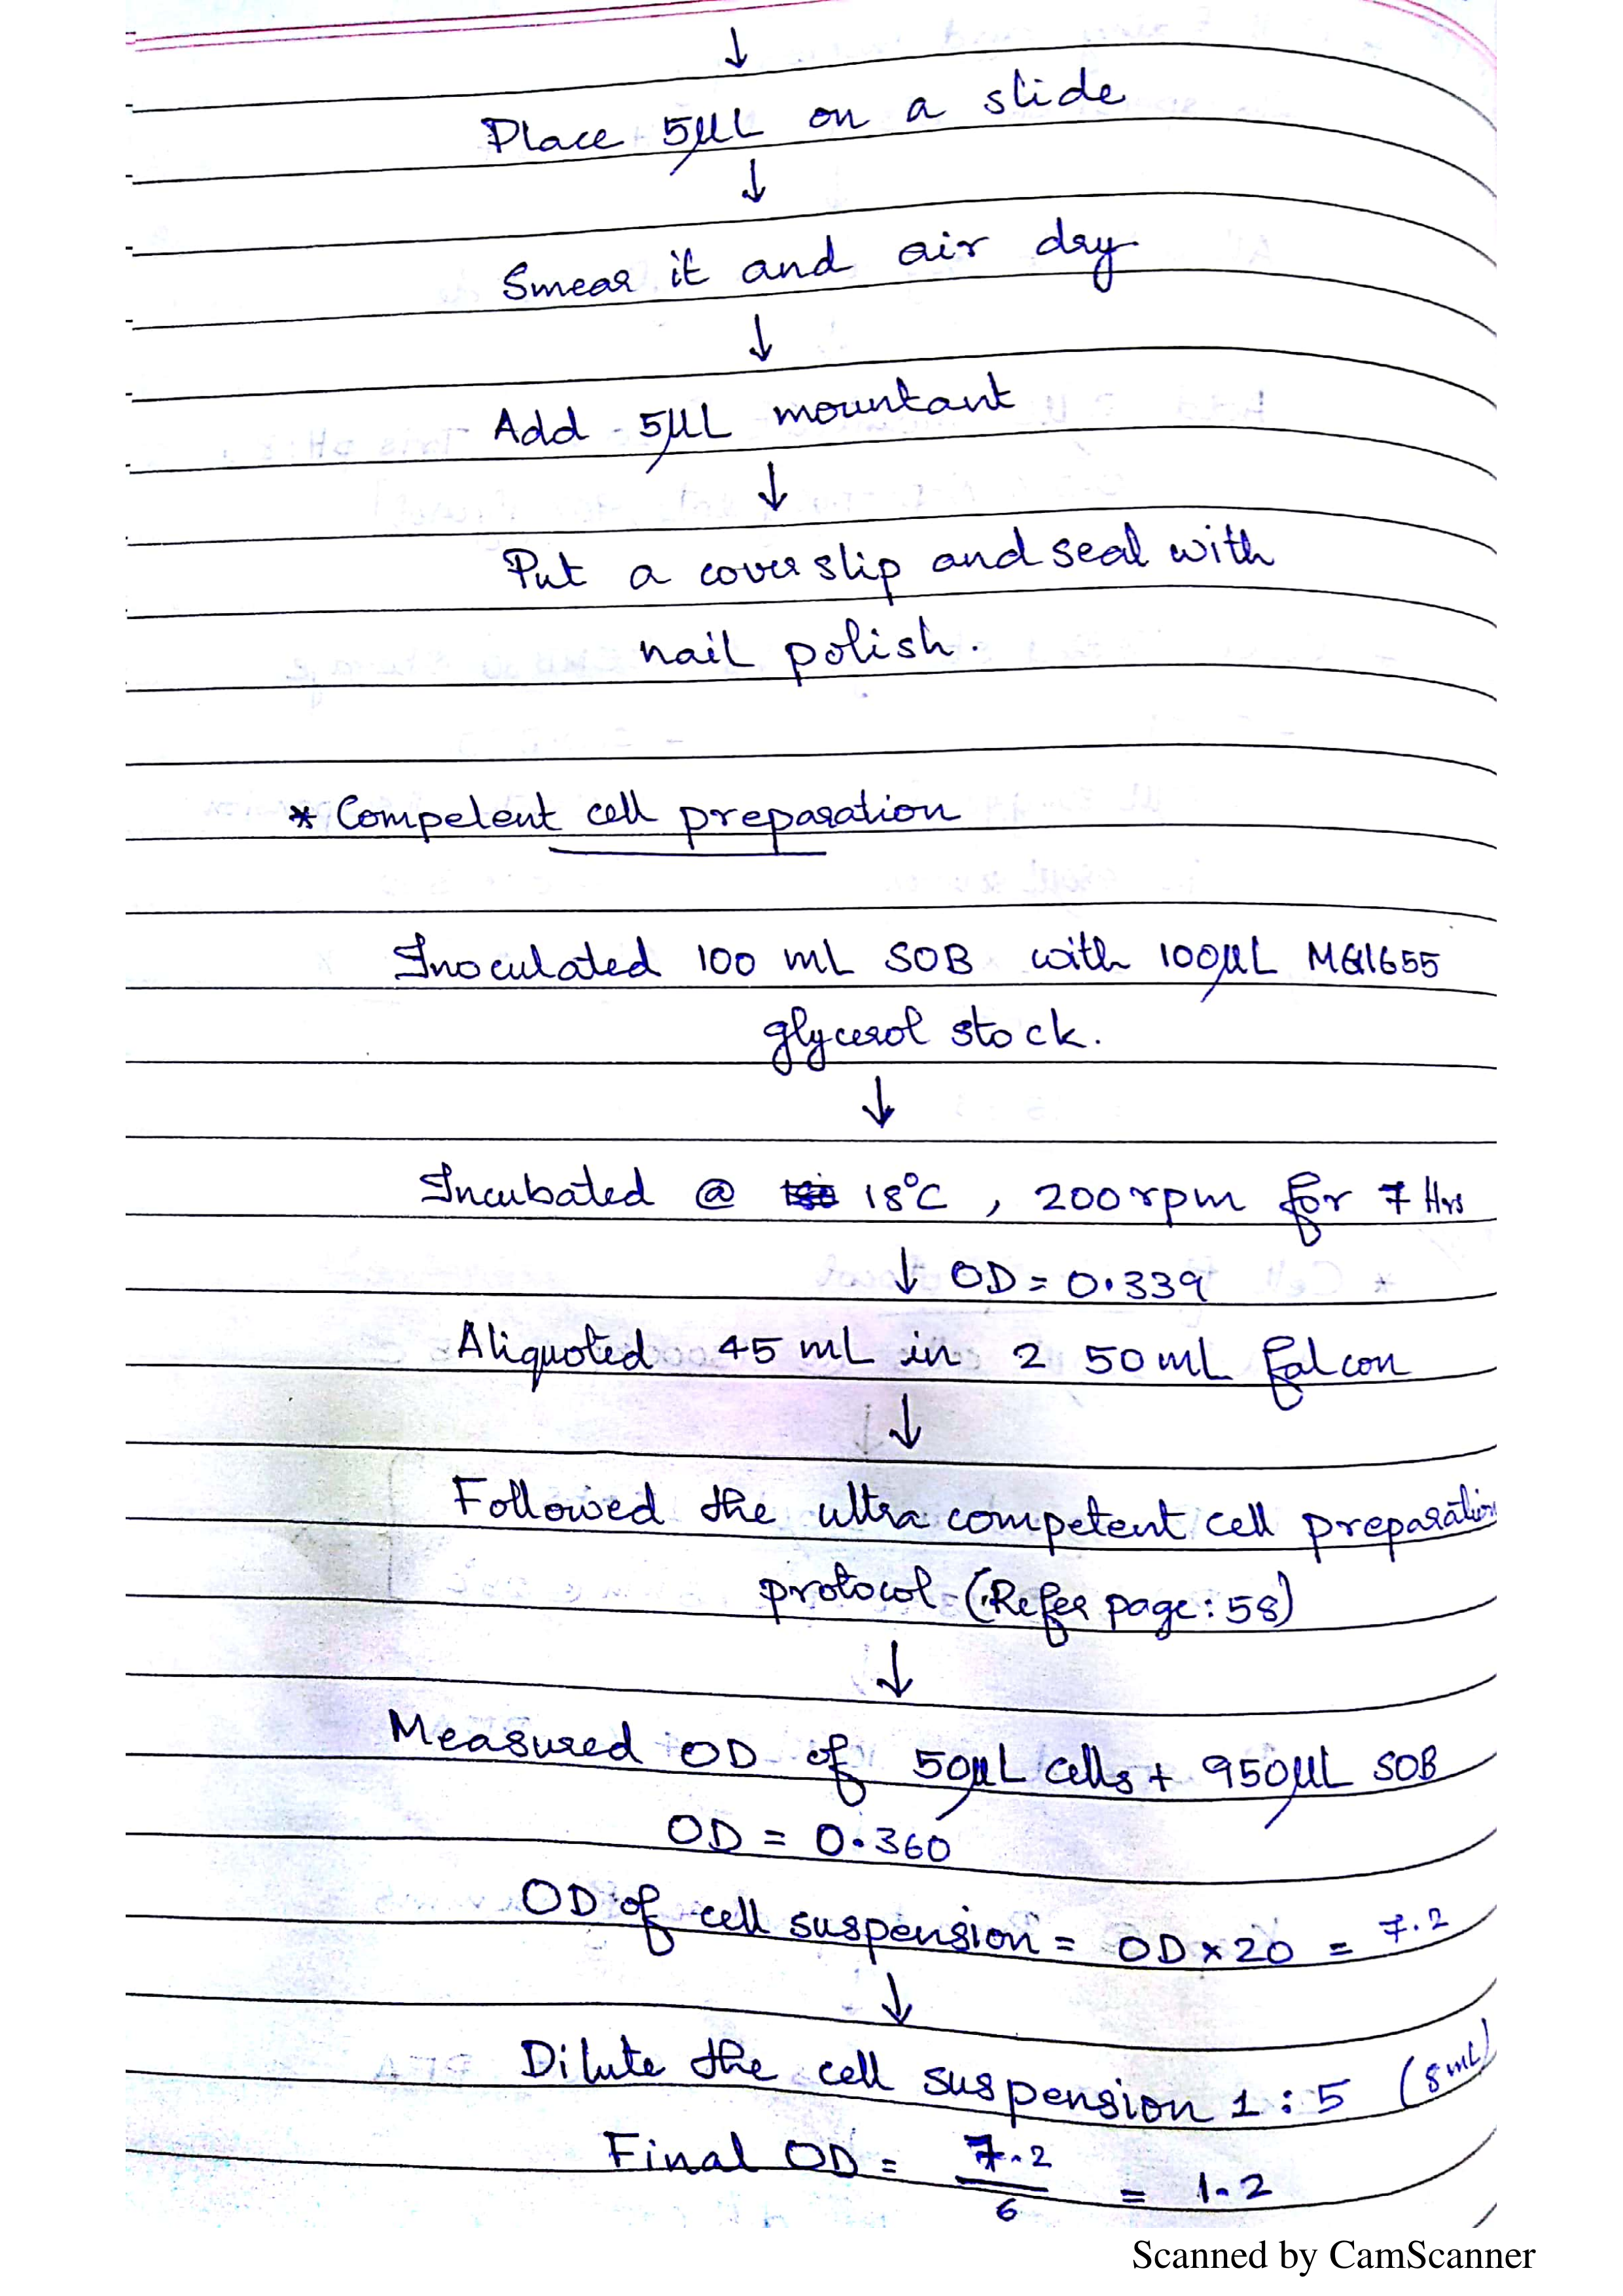 ↓
Place 5µL on a slide
↓
Smear it and air dry
↓
Add 5µL mountant
↓
Put a coverslip and seal with
nail polish.
* Competent cell preparation
Inoculated 100 mL SOB with 100µL MG1655
glycerol stock.
↓
Incubated @ 18°C, 200rpm for 7 Hrs
↓ OD = 0.339
Aliquoted 45 mL in 2 50mL falcon
↓
Followed the ultra competent cell preparation
protocol (Refer page: 58)
↓
Measured OD of 50µL cells + 950µL SOB
OD = 0.360
OD of cell suspension = OD x 20 = 7.2
↓
Dilute the cell suspension 1 : 5 (8mL)
Final OD = 7.2/6 = 1.2
Scanned by CamScanner